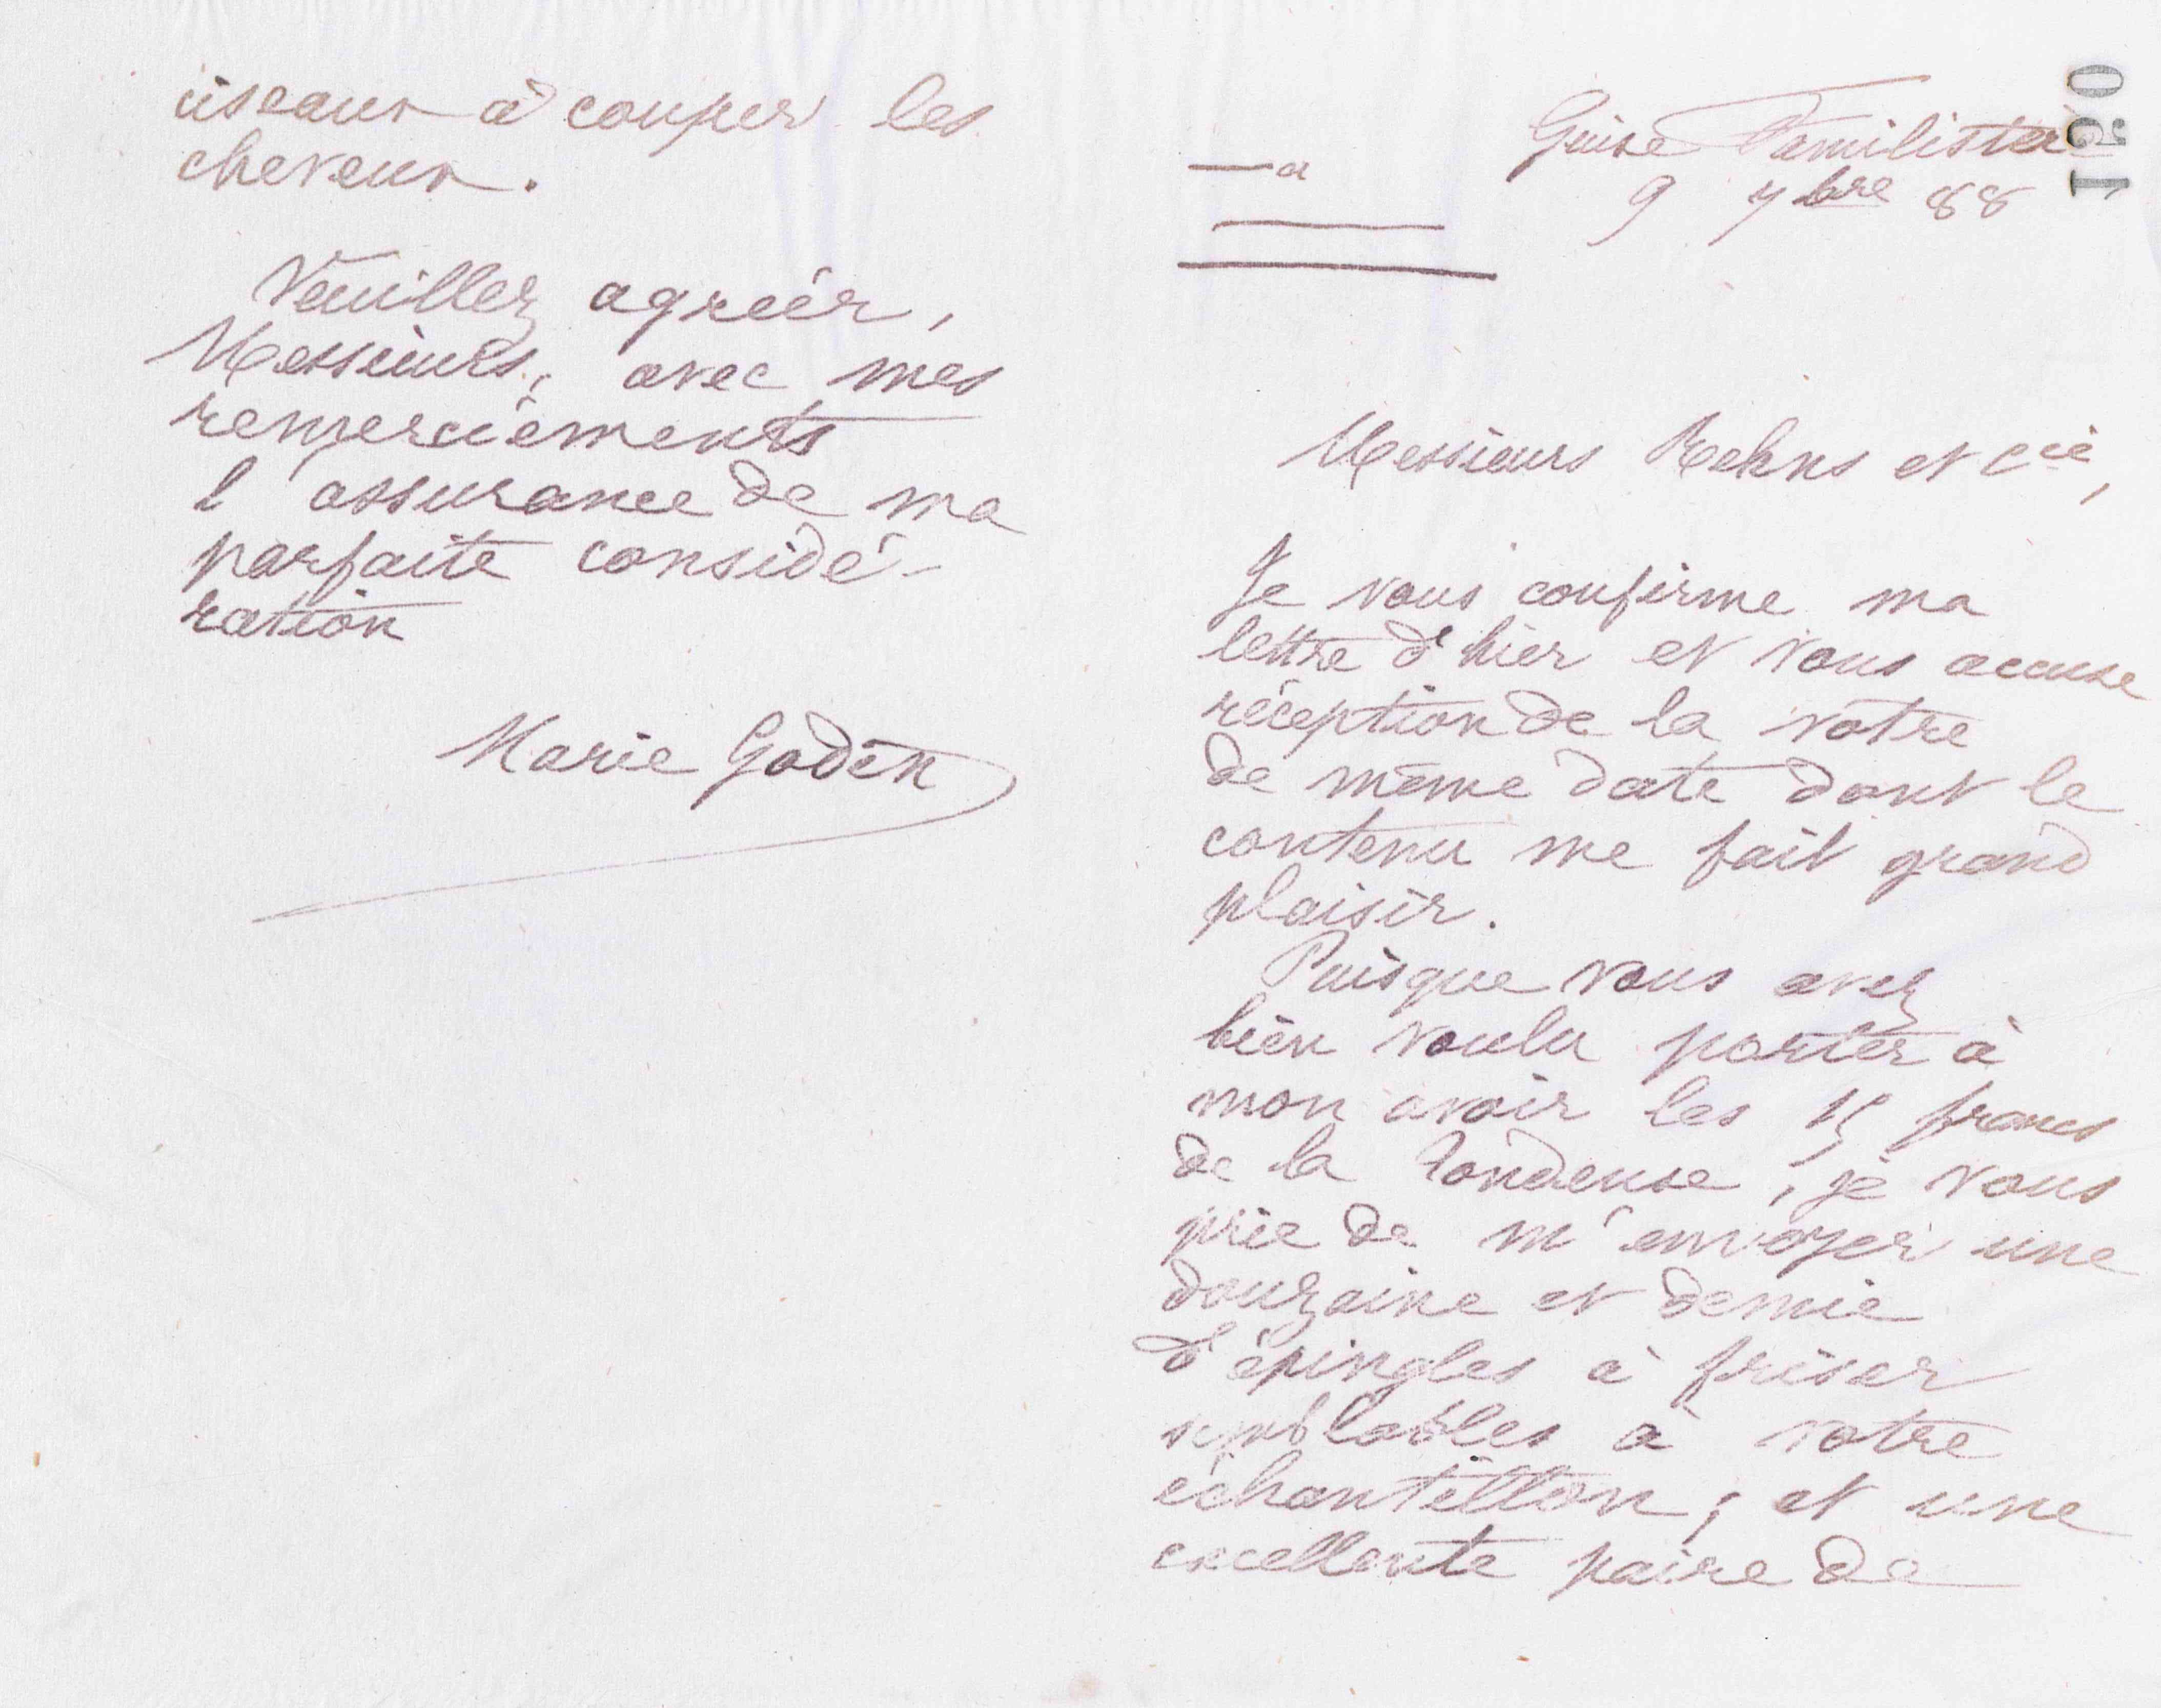 Guise Familistère
9 7bre 88
120
Messieurs Rehns et Cie,
Je vous confirme ma
lettre d'hier et vous accuse
réception de la votre
de même date dont le
contenu me fait grand
plaisir.
Puisque vous avez
bien voulu porter à
mon avoir les 15 francs
de la tondeuse, je vous
prie de m'envoyer une
douzaine et demie
d'épingles à friser
semblables à votre
échantillon; et une
excellente paire de
ciseaux à couper les
cheveux.
Veuillez agréer,
Messieurs, avec mes
remerciements
l'assurance de ma
parfaite considé-
ration
Marie Godin